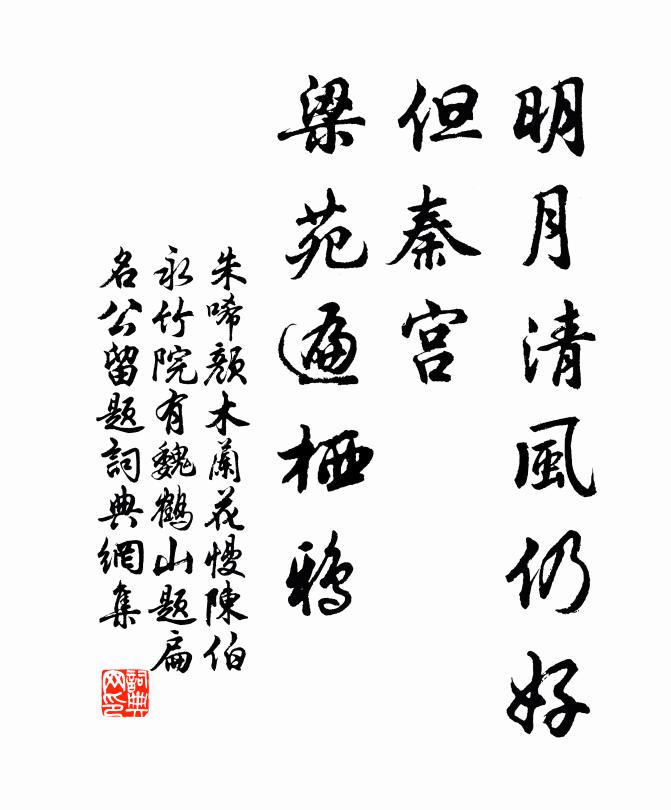 明月清風仍好
但秦宮
梁苑遍栖鴉
朱唏顏木蘭花慢陳伯
永竹院有魏鶴山題扁
名公留題詞典網集
詞典网印